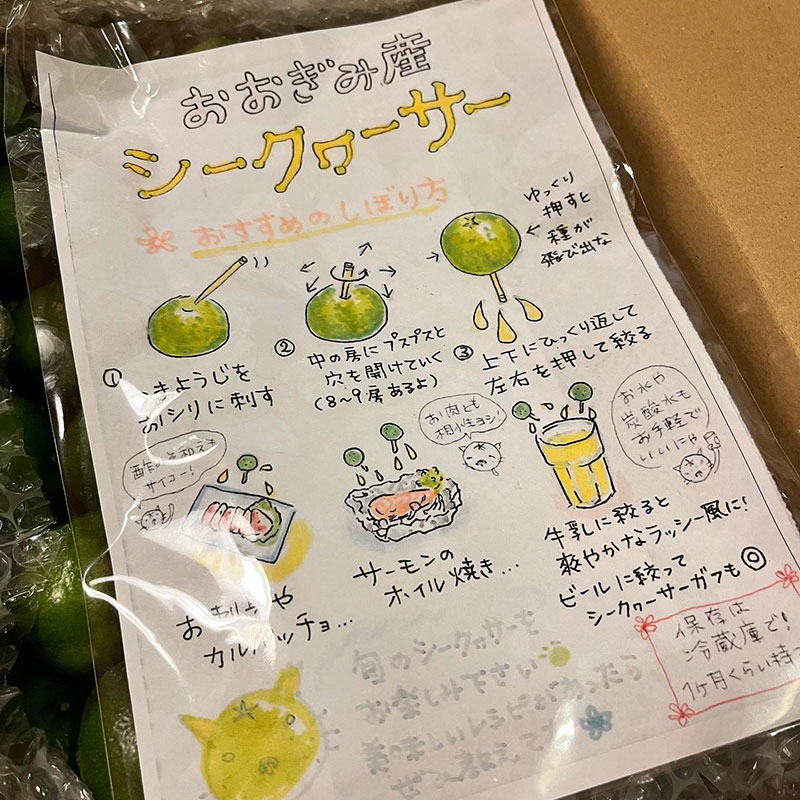 おおぎみ産
シークヮーサー
おすすめのしぼり方
ゆっくり
押すと
種が
飛び出な
①
ようじを
おシリに刺す
②
中の房にプスプスと
穴を開けていく
(8～9房あるよ)
③
上下にひっくり返して
左右を押して絞る
サイコー!
お肉とも
相性ヨシ!
お水や
炭酸水も
お手軽で
いいにゃ
おさしみや
カルパッチョ…
サーモンの
ホイル焼き…
牛乳に絞ると
爽やかなラッシー風に!
ビールに絞って
シークヮーサーガフも◎
保存は
冷蔵庫で!
1ヶ月くらい持つ
旬のシークヮサーを
お楽しみ下さい
美味しいレシピがあったら
ぜひ教えて下